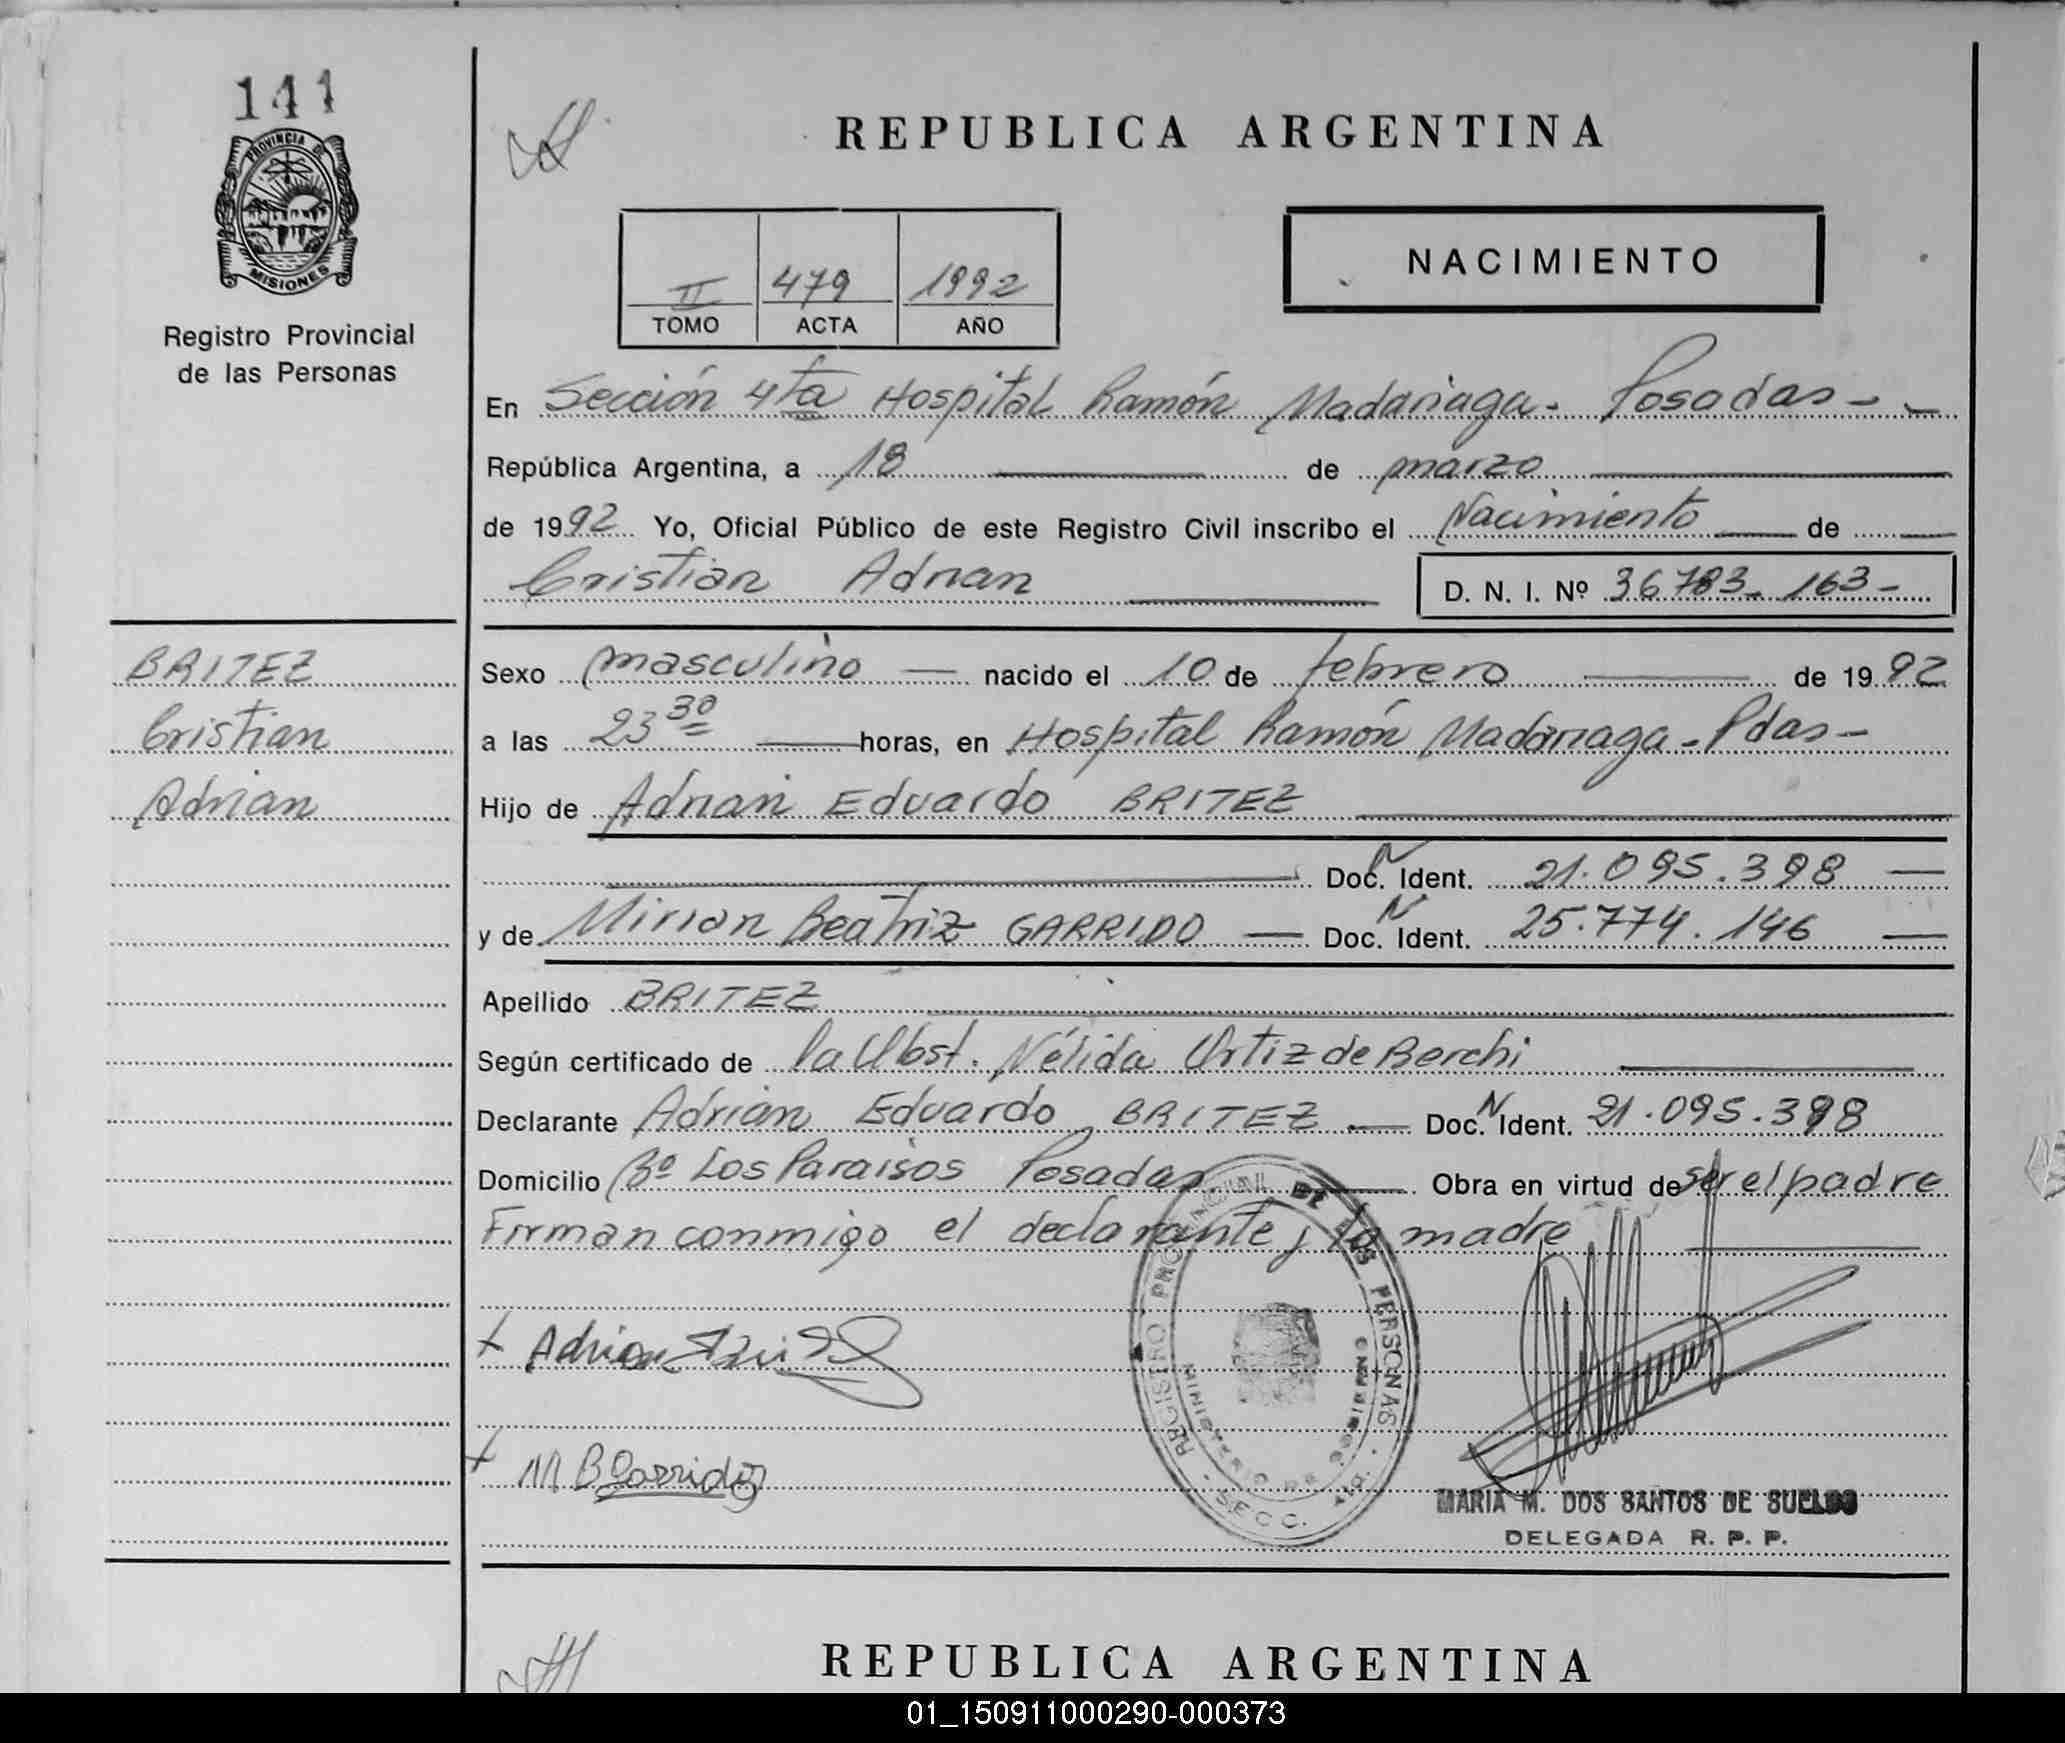 141
PROVINCIA DE
MISIONES
Registro Provincial
de las Personas
REPUBLICA ARGENTINA
II 479 1992
TOMO ACTA AÑO
NACIMIENTO
En Sección 4ta Hospital Ramón Madariaga - Posadas - -
República Argentina, a 18 de marzo
de 1992 Yo, Oficial Público de este Registro Civil inscribo el Nacimiento de
Cristian Adrian D. N. I. Nº 36783-163-
BRITEZ
Cristian
Adrian
Sexo masculino nacido el 10 de febrero de 1992
a las 23 30 horas, en Hospital Ramón Madariaga - Pdas -
Hijo de Adrian Eduardo BRITEZ
Doc. N Ident. 21.095.398
y de Mirian Beatriz GARRIDO Doc. N Ident. 25.774.146
Apellido BRITEZ
Según certificado de la Obst. Nélida Ortiz de Berchi
Declarante Adrián Eduardo BRITEZ Doc. N Ident. 21.095.398
Domicilio Bº Los Paraisos Posadas Obra en virtud de ser el padre
Firman conmigo el declarante y la madre
REGISTRO PROVINCIAL DE LAS PERSONAS
MINISTERIO DE GOBIERNO
SECC. 4ta.
+ Adrian
+ M B Garrido
MARIA M. DOS SANTOS DE SUELDO
DELEGADA R. P. P.
REPUBLICA ARGENTINA
01_150911000290-000373